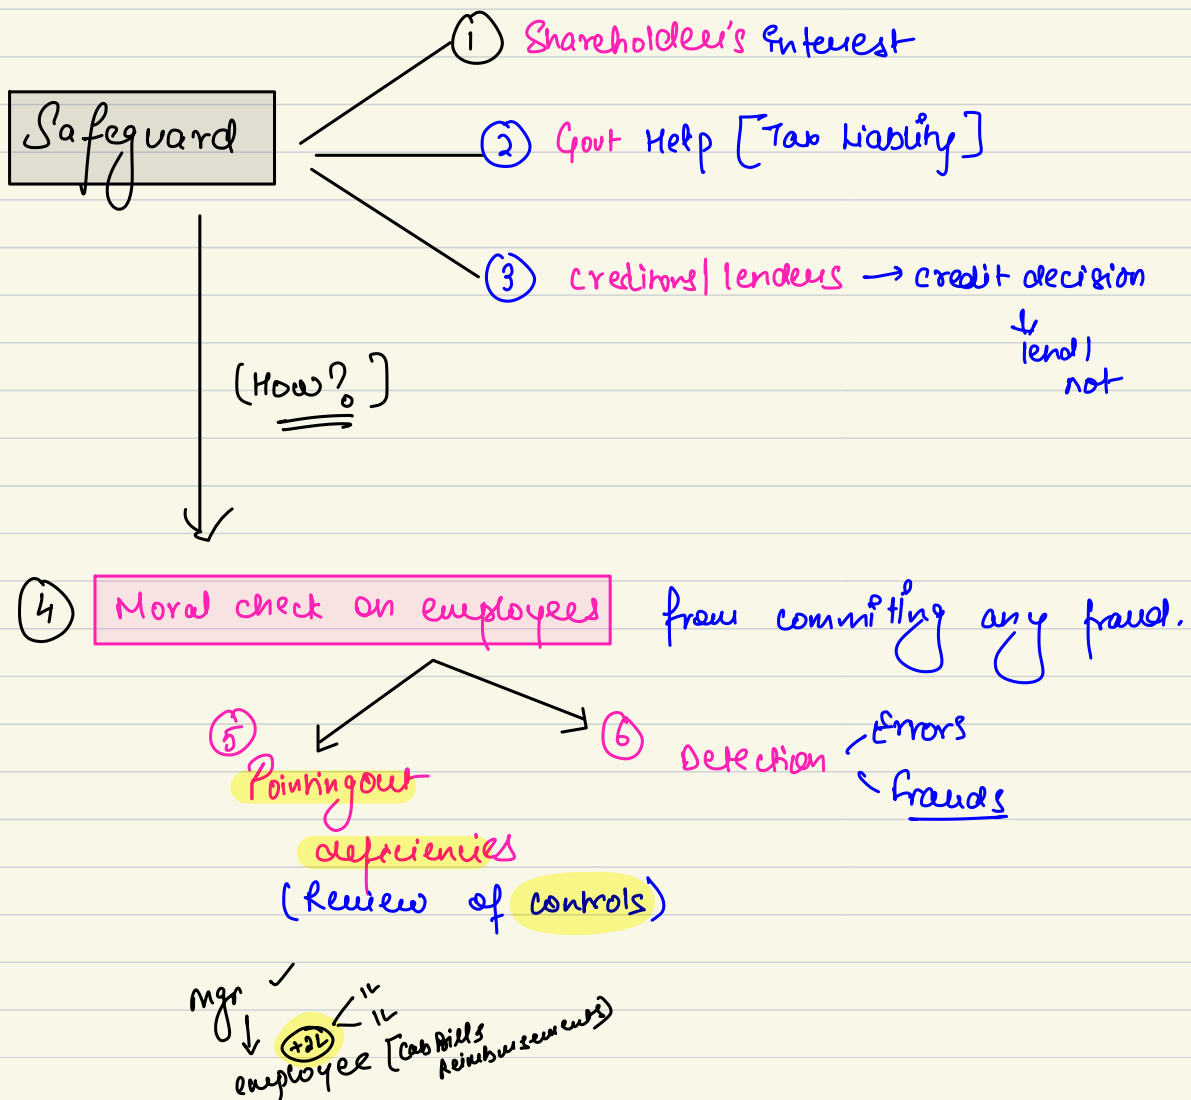 ① Shareholder's interest
Safeguard
② Govt Help [Tax Liablity]
③ creditors/lenders → credit decision
↓
lend/
not
(How?]
④ Moral check on employees from committing any fraud.
⑤
Pointing out
deficiencies
(Review of controls)
⑥ Detection
Errors
frauds
Mgr ✓
↓
+2L
1L
1L
employee [Cab Bills
Reimbursements)